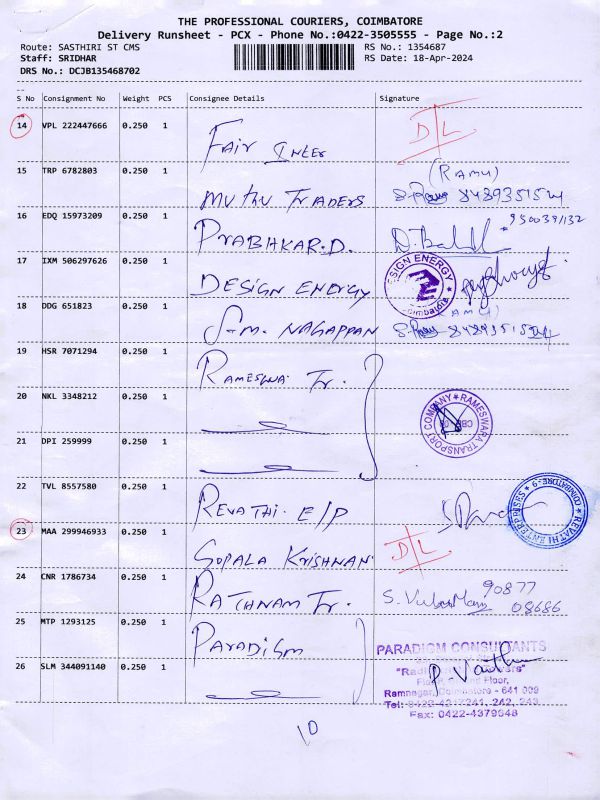 THE PROFESSIONAL COURIERS, COIMBATORE
Delivery Runsheet - PCX - Phone No.:0422-3505555 - Page No.:2
Route: SASTHIRI ST CMS RS No.: 1354687
Staff: SRIDHAR RS Date: 18-Apr-2024
DRS No.: DCJB135468702
S No Consignment No Weight PCS Consignee Details Signature
14 VPL 222447666 0.250 1 FAIR INTER D/L
15 TRP 6782803 0.250 1 MUTHU TRADERS (RAMU) 8489351524
16 EDQ 15973209 0.250 1 PRABHKAR.D.
17 IXM 506297626 0.250 1 DESIGN ENERGY DESIGN ENERGY Coimbatore
18 DDG 651823 0.250 1 S.M. NAGAPPAN (RAMU)
19 HSR 7071294 0.250 1 RAMESWA Tr.
20 NKL 3348212 0.250 1 RAMESWARA TRANSPORT COMPANY CBE
21 DPI 259999 0.250 1
22 TVL 8557580 0.250 1 REVATHI. E/P REVATHI ENTERPRISES COIMBATORE-9
23 MAA 299946933 0.250 1 GOPALA KRISHNAN D/L
24 CNR 1786734 0.250 1 RATHNAM Tr. 90877 08686
25 MTP 1293125 0.250 1 PARADIGM PARADIGM CONSULTANTS
26 SLM 344091140 0.250 1 Floor,
Ramnagar, Coimbatore - 641 009
Fax: 0422-4379648
10